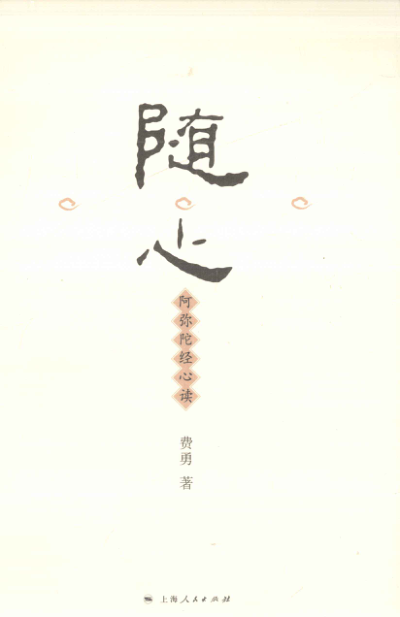 随心
阿弥陀经心读
费勇 著
上海人民出版社